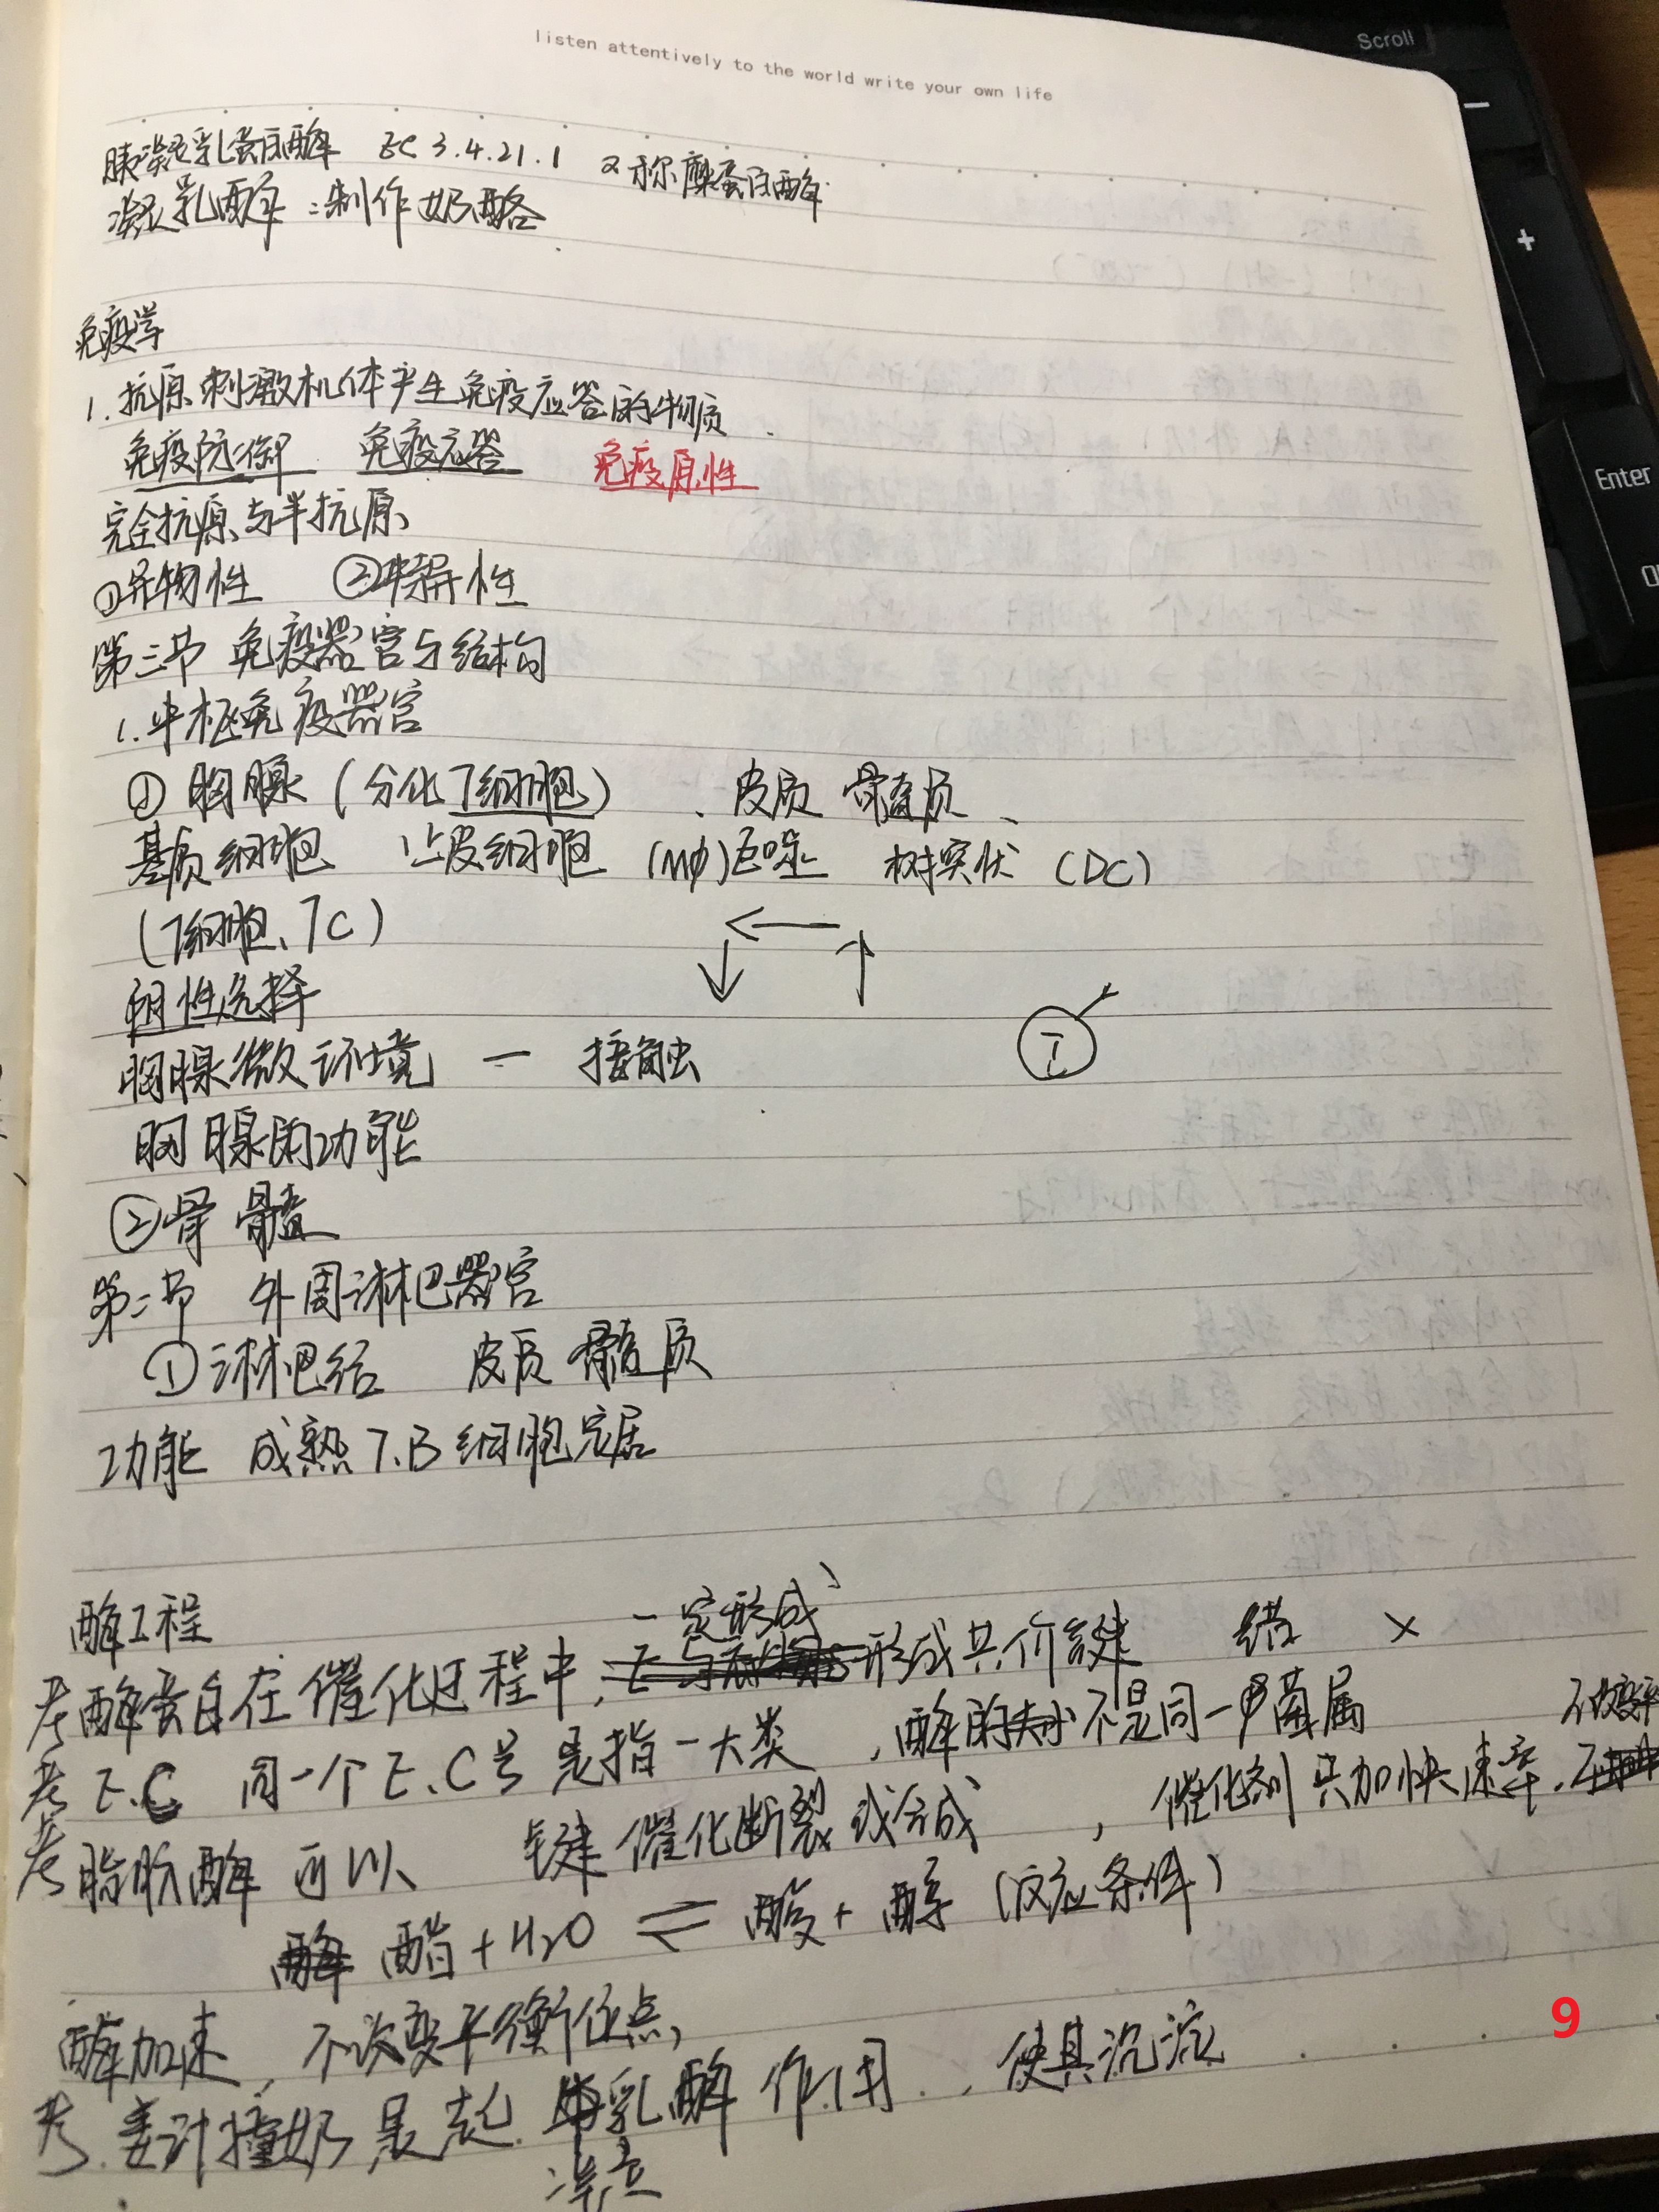 listen attentively to the world write your own life
Scroll
Enter
胰凝乳蛋白酶 EC 3.4.21.1 又称糜蛋白酶
凝乳酶:制作奶酪
免疫学
1.抗原刺激机体产生免疫应答的物质
免疫防御 免疫应答 免疫原性
完全抗原与半抗原
①异物性 ②特异性
第三节 免疫器官与结构
1.中枢免疫器官
① 胸腺(分化T细胞)、皮质 髓质、
基质细胞 上皮细胞 (Mφ)巨噬 树突状 (DC)
(T细胞、TC)
阴性选择
胸腺微环境 — 接触
T
胸腺的功能
②骨髓
第二节 外周淋巴器官
①淋巴结 皮质 髓质
功能 成熟T.B细胞定居
酶工程
一定形成
考酶蛋白在催化过程中,形成共价键 错 ×
考 E.C 同一个E.C号是指一大类,酶的 不是同一中菌属
不改变平
考脂肪酶可以 键催化断裂或合成,催化剂只加快速率.
酯+H₂O ⇌ 酸+醇(反应条件)
酶加速,不改变平衡位点,
考.姜汁撞奶是起 乳酶作用.,使其沉淀
凝
9